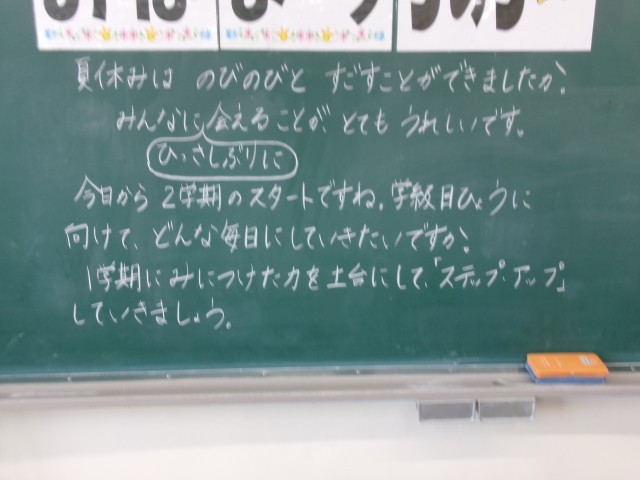 夏休みは のびのびと すごすことができましたか?
みんなに会えることが、とても うれしいです。
ひさしぶりに
今日から 2学期のスタートですね。学級目ひょうに
向けて、どんな毎日にしていきたいですか?
1学期にみにつけた力を土台にして、「ステップ・アップ」
していきましょう。